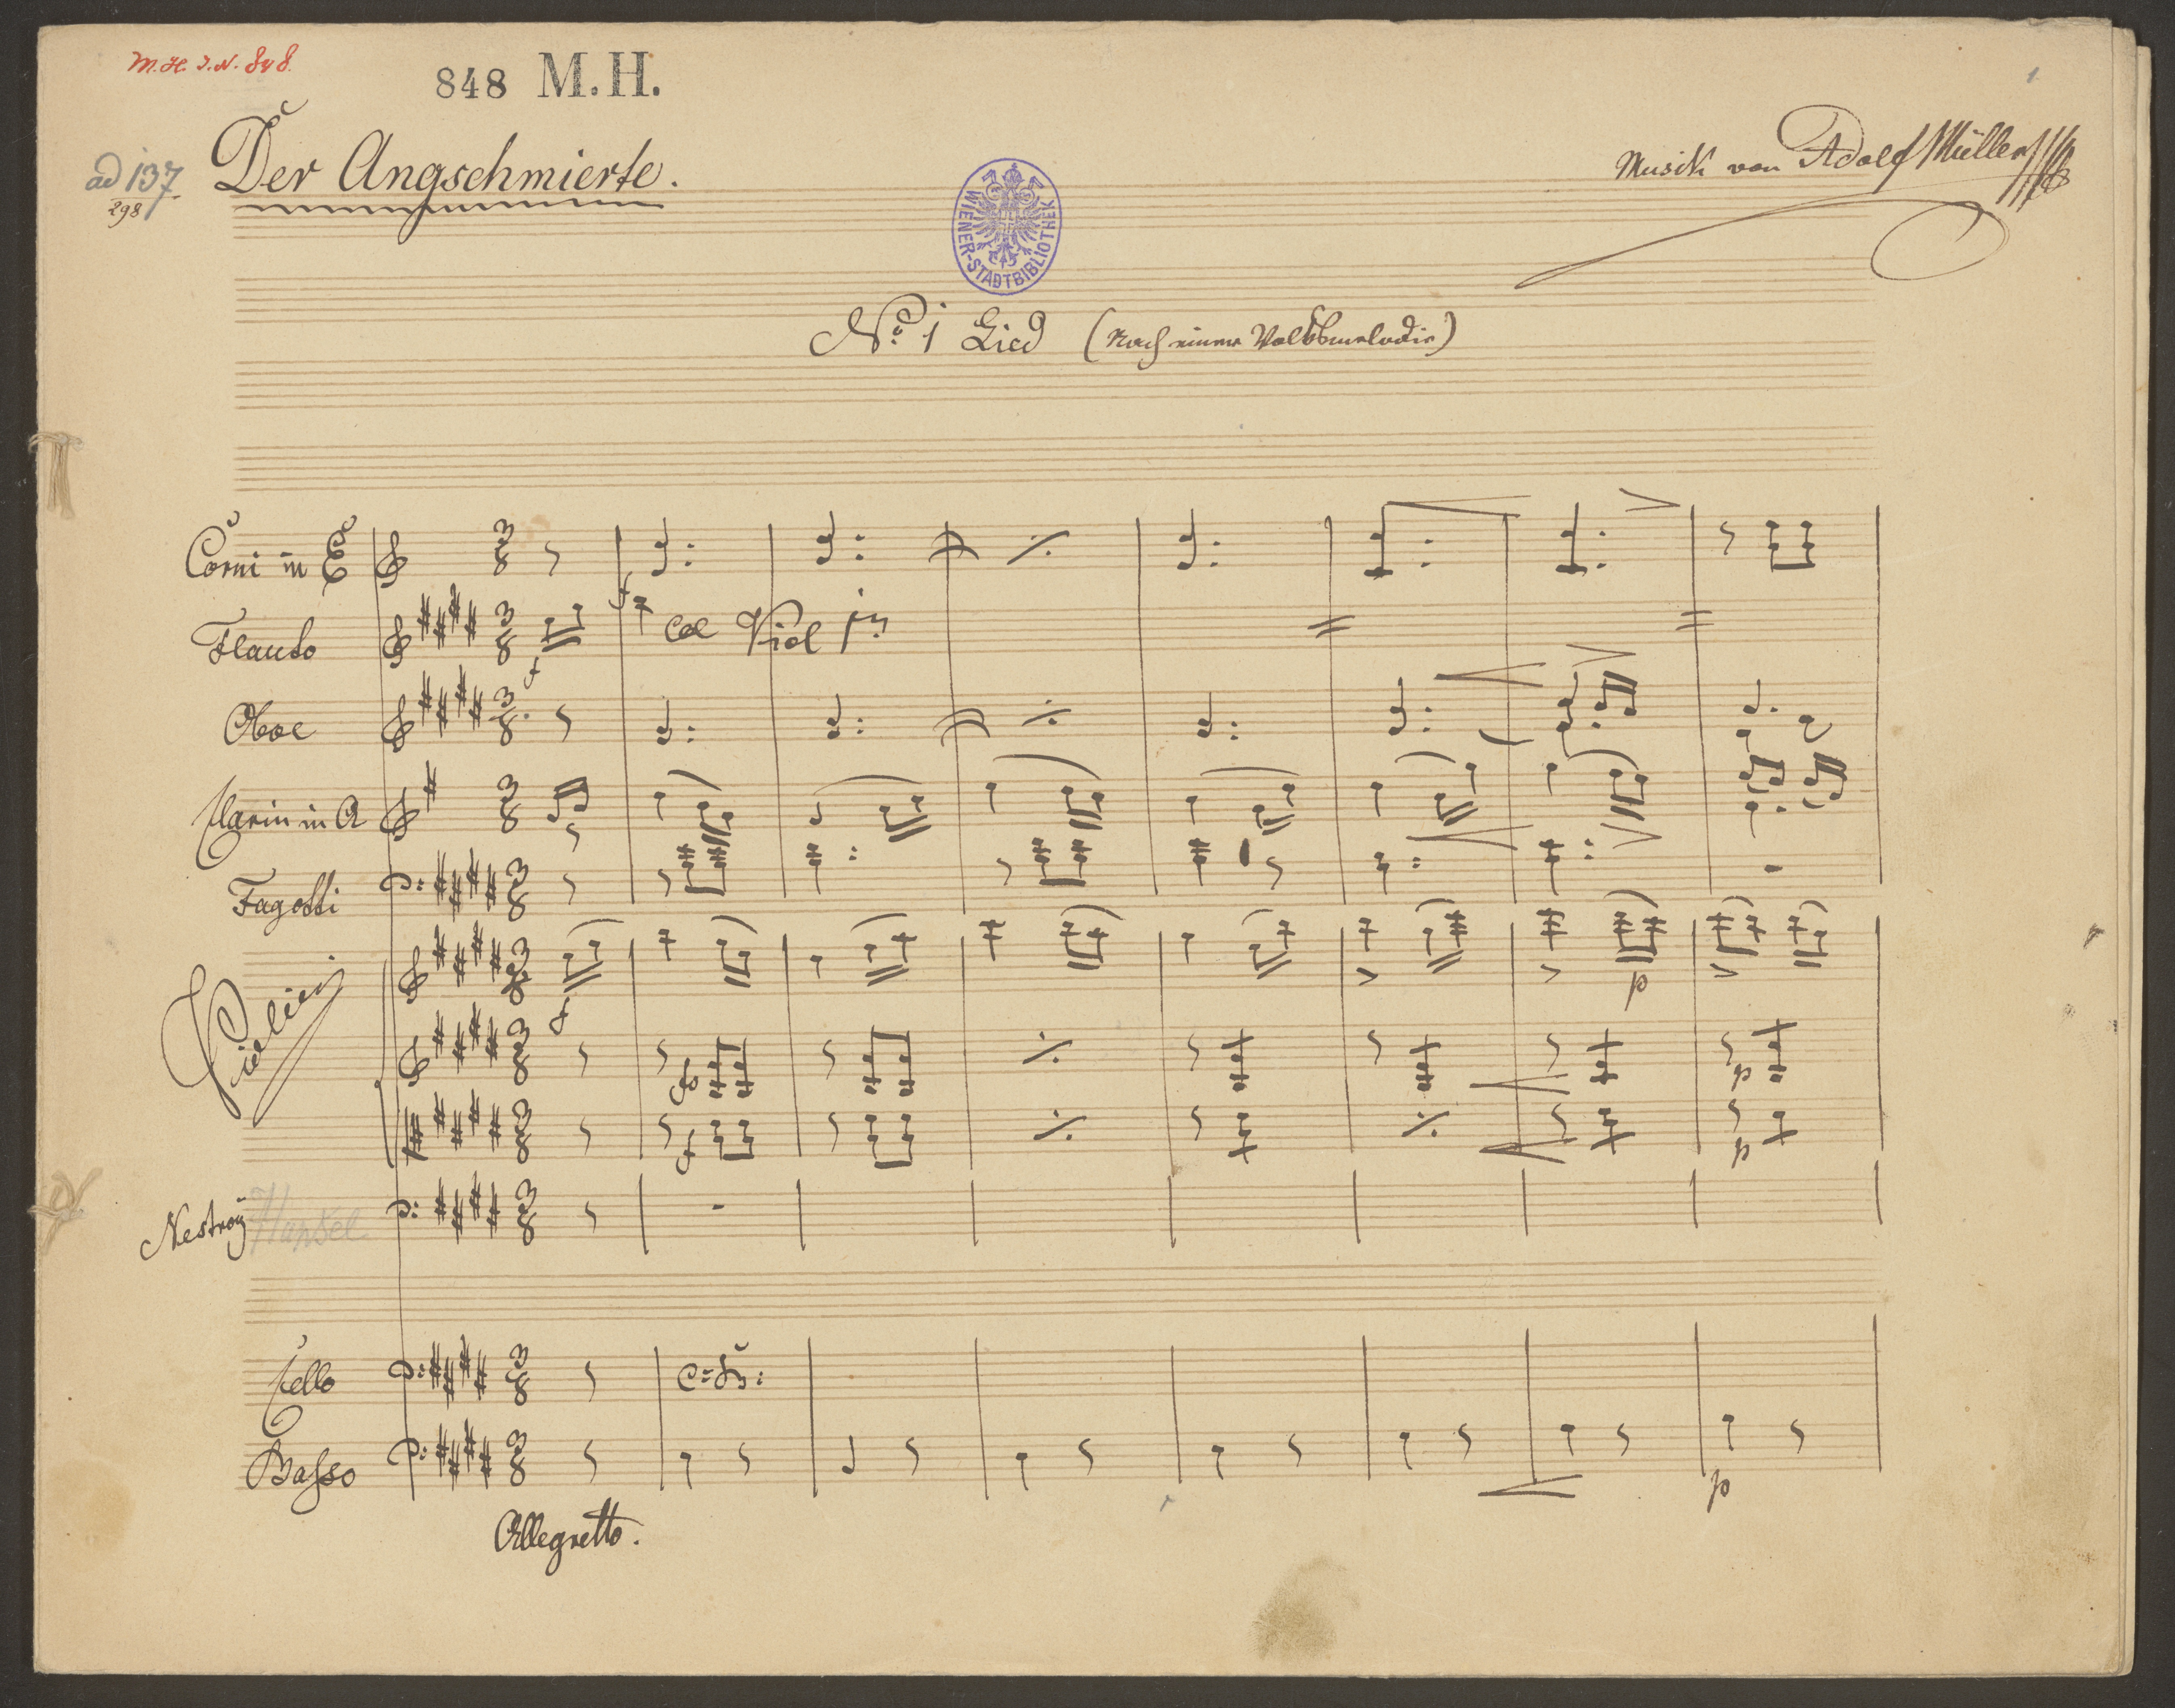 M.H. I.N. 848.
848 M.H.
1
ad 137
298
Der Angschmierte.
Musik von Adolf Müller
WIENER-STADTBIBLIOTHEK
No. 1 Lied (Nach einer Volksmelodie)
Corni in E
Flauto
f
f
Col Viol 1mo
Oboe
Clarin in A
Fagotti
Violini
f
p
fo
p
f
p
Nestroy
Cello
C: B:
Basso
p
Allegretto.